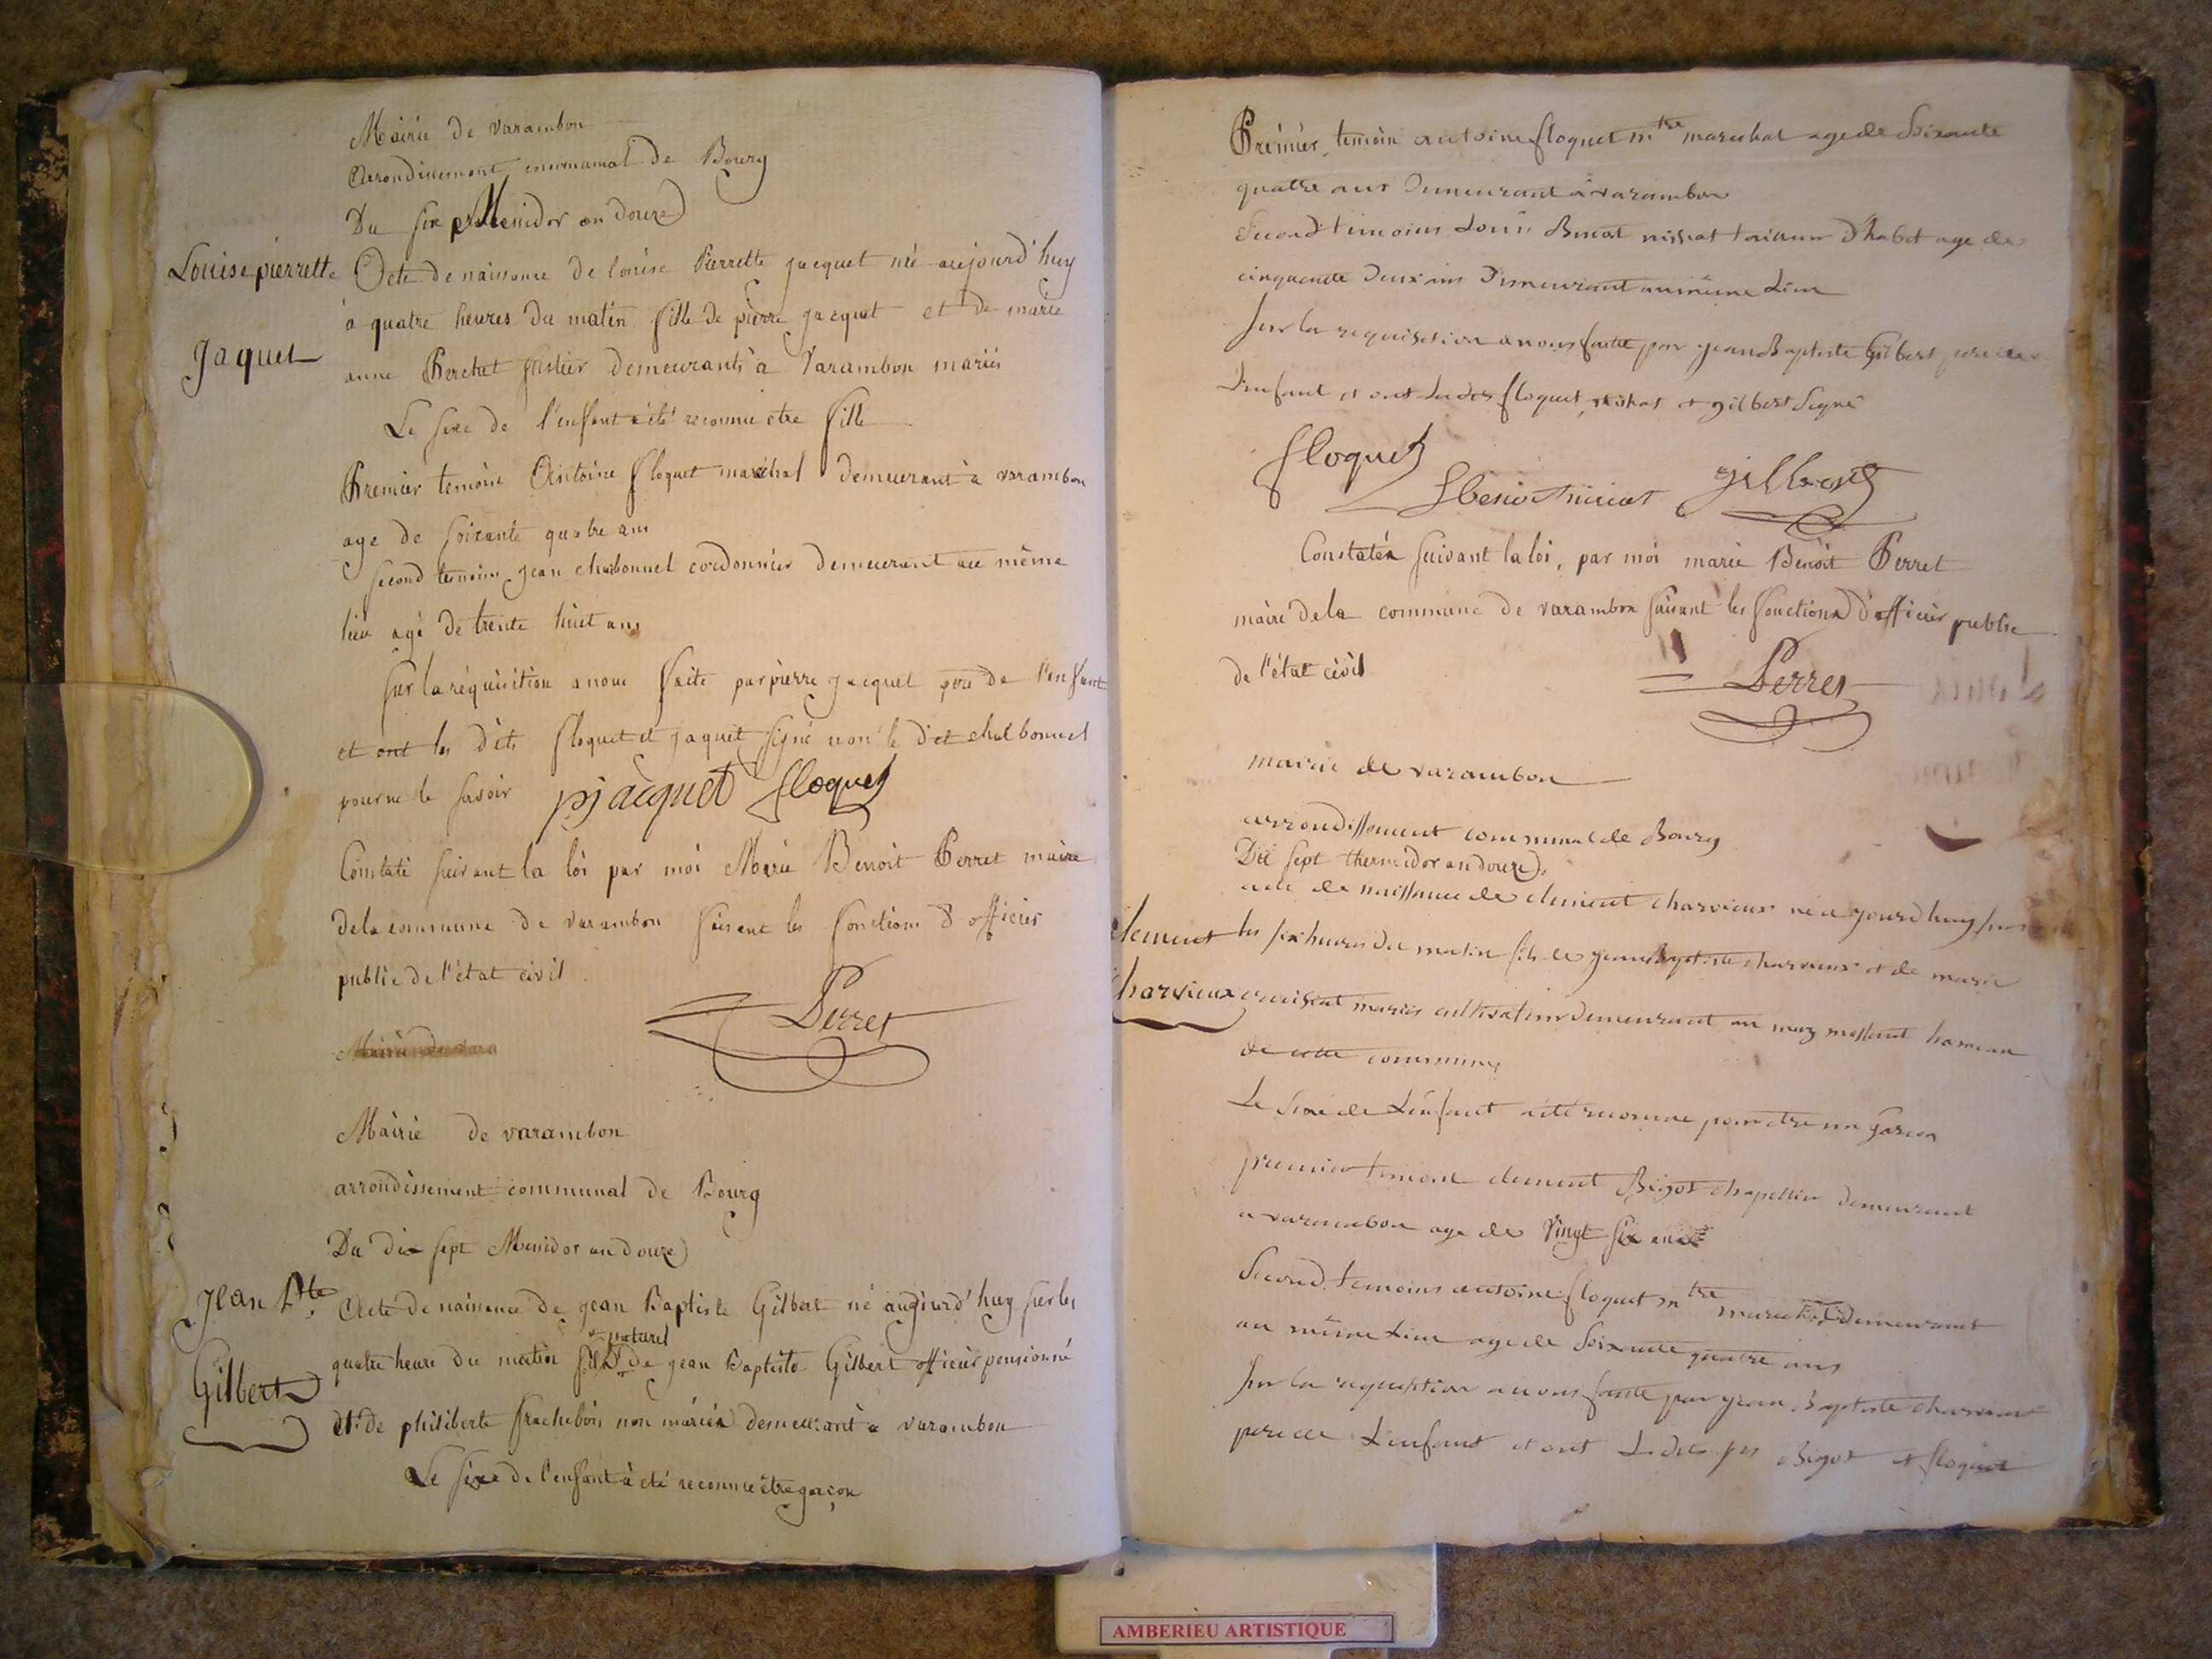 Mairie de varambon
arondissement communal de Bourg
Du six Messidor an douze
Louise pierrette
Jaquet
Acte de naissance de louise Pierrette jacquet né aujourd'huy
à quatre heures du matin fille de pierre jacquet et de marie
anne demeurants à Varambon mariés
Le sexe de l'enfant a été reconnu etre fille
Premier temoin Antoine floquet maréchal demeurant à varambon
age de soixante quatre ans
second temoin jean chalbonnel cordonnier demeurant au même
lieu agé de trente huit ans
sur la réquisition a nous faite par pierre jacquet pere de l'enfant
et ont les dits floquet et jaquet signé non le dit chalbonnel
pour ne le savoir pjacquet floquet
Constaté suivant la loi par moi Marie Benoit Perret maire
de la commune de varambon faisant les fonctions d'officier
public de l'état civil
Perret
Mairie de varambon
arrondissement communal de Bourg
Du dix sept Messidor an douze
Jean Bte
Gilbert
Acte de naissance de jean Baptiste Gilbert né aujourd'huy sur les
naturel
quatre heure du matin fils de jean Baptiste Gilbert officier pensionné
et de philiberte frachebois non mariés demeurant à varambon
Le sexe de l'enfant à été reconnu être garçon
Premier temoin antoine floquet mtre marechal age de Soixante
quatre ans demeurant à varambon
Second temoins Louis Benoit nissiat tailleur d'habit age de
cinquante deux ans demeurant au même Lieu
Sur la requisition a nous faitte par jean Baptiste Gilbert pere de
L'enfant et ont Ledits floquet, et gilbert Signé
floquet
gilbert
Constatéa suivant la loi, par moi marie Benoit Perret
maire de la commune de varambon faisant les fonctions d'officier public
de l'état civil
Perret
mairie de varambon
arrondissement communal de Bourg
Du sept thermidor an douze
acte de naissance de clement charvieux né ajourd huy sur
clement
les six heures du matin fils de jean Baptiste charvieux et de marie
charvieux
mariés cultivateur demeurant au hameau
de cette commune
Le Sexe de L'enfant a été reconnue pour etre un garcon
premier temoin clement Bigot chapellier demeurant
a varambon age de vingt six ans
Second temoins antoine floquet mtre marechal demeurant
au même Lieu age de Soixante quatre ans
Sur la requisition a nous faitte par jean Baptiste charvieux
pere de L'enfant et ont Ledits Bigot et floquet
AMBERIEU ARTISTIQUE